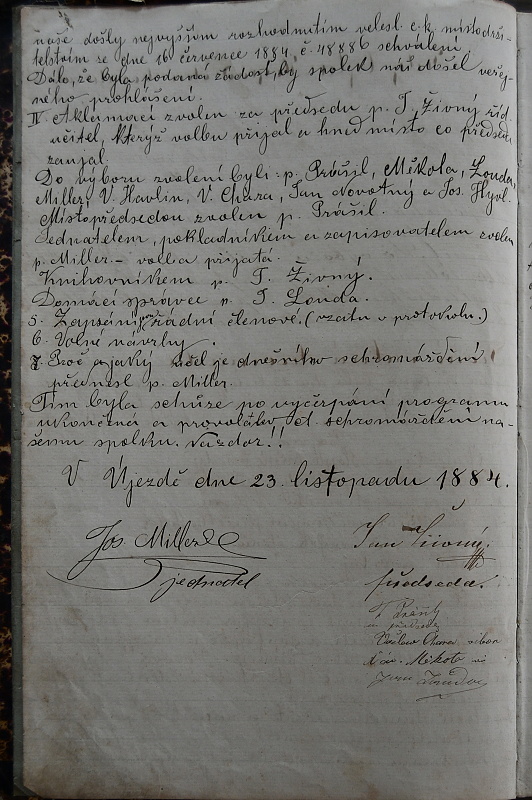 naše došly nejvyšším rozhodnutím velesl. c. k. místodrži-
telstvím ze dne 16 července 1884, č. 48886 schválení.
Dálo, že byla podána žádost, by spolek náš došel veřej-
ného prohlášení.
IV. Aklamací zvolen za předsedu p. J. Živný říd.
učitel, kterýž volbu přijal a hned místo co předseda
zaujal.
Do výboru zvoleni byli: p. Prášil, Mikota, Londa,
Miller, V. Havlin, V. Chara, Jan Novotný a Jos. Hybl.
Místopředsedou zvolen p. Prášil.
Jednatelem, pokladníkem a zapisovatelem zvolen
p. Miller. – volba přijata.
Knihovníkem p. J. Živný.
Domácí správce p. J. Londa.
5. Zapsáni řádní členové. (vzato v protokolu.)
6. Volné návrhy.
7. Proč a jaký účel je dnešního schromáždění
přednesl p. Miller.
Tím byla schůze po vyčerpání programu
ukončena a provoláno ct. schromáždění na-
šemu spolku. Nazdar!!
V Újezdě dne 23. listopadu 1884.
Jos. Miller
jednatel
Jan Živný.
předseda.
J. Prášil
m předseda
Václav Chara
Mikota
Jan Londa